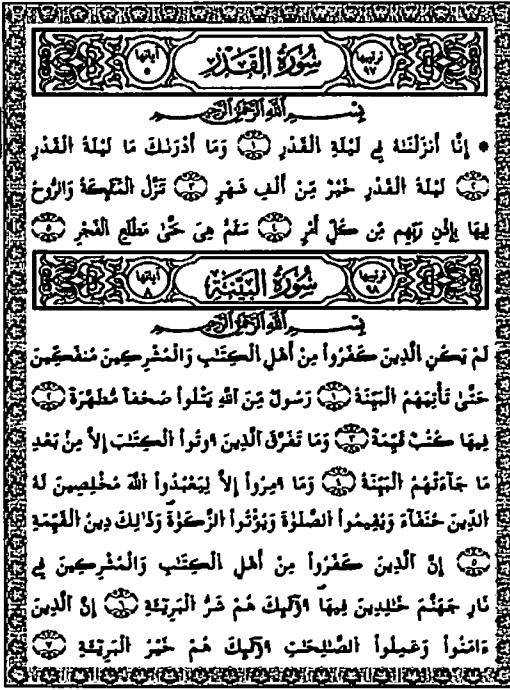 ترتيبها ٩٧ سُورَةُ القَدْرِ آياتها ٥
بِسْمِ اللَّهِ الرَّحْمَٰنِ الرَّحِيمِ
* إِنَّا أَنزَلْنَٰهُ فِي لَيْلَةِ الْقَدْرِ ١ وَمَا أَدْرَىٰكَ مَا لَيْلَةُ الْقَدْرِ
٢ لَيْلَةُ الْقَدْرِ خَيْرٌ مِّنْ أَلْفِ شَهْرٍ ٣ تَنَزَّلُ الْمَلَٰٓئِكَةُ وَالرُّوحُ
فِيهَا بِإِذْنِ رَبِّهِم مِّن كُلِّ أَمْرٍ ٤ سَلَٰمٌ هِيَ حَتَّىٰ مَطْلَعِ الْفَجْرِ ٥
ترتيبها ٩٨ سُورَةُ البَيِّنَةِ آياتها ٨
بِسْمِ اللَّهِ الرَّحْمَٰنِ الرَّحِيمِ
لَمْ يَكُنِ الَّذِينَ كَفَرُواْ مِنْ أَهْلِ الْكِتَٰبِ وَالْمُشْرِكِينَ مُنفَكِّينَ
حَتَّىٰ تَأْتِيَهُمُ الْبَيِّنَةُ ١ رَسُولٌ مِّنَ اللَّهِ يَتْلُواْ صُحُفاً مُّطَهَّرَةً ٢
فِيهَا كُتُبٌ قَيِّمَةٌ ٣ وَمَا تَفَرَّقَ الَّذِينَ أُوتُواْ الْكِتَٰبَ إِلَّا مِنۢ بَعْدِ
مَا جَآءَتْهُمُ الْبَيِّنَةُ ٤ وَمَا أُمِرُواْ إِلَّا لِيَعْبُدُواْ اللَّهَ مُخْلِصِينَ لَهُ
الدِّينَ حُنَفَآءَ وَيُقِيمُواْ الصَّلَوٰةَ وَيُؤْتُواْ الزَّكَوٰةَ وَذَٰلِكَ دِينُ الْقَيِّمَةِ
٥ إِنَّ الَّذِينَ كَفَرُواْ مِنْ أَهْلِ الْكِتَٰبِ وَالْمُشْرِكِينَ فِي
نَارِ جَهَنَّمَ خَٰلِدِينَ فِيهَا أُوْلَٰٓئِكَ هُمْ شَرُّ الْبَرِيٓـَٔةِ ٦ إِنَّ الَّذِينَ
ءَامَنُواْ وَعَمِلُواْ الصَّٰلِحَٰتِ أُوْلَٰٓئِكَ هُمْ خَيْرُ الْبَرِيٓـَٔةِ ٧